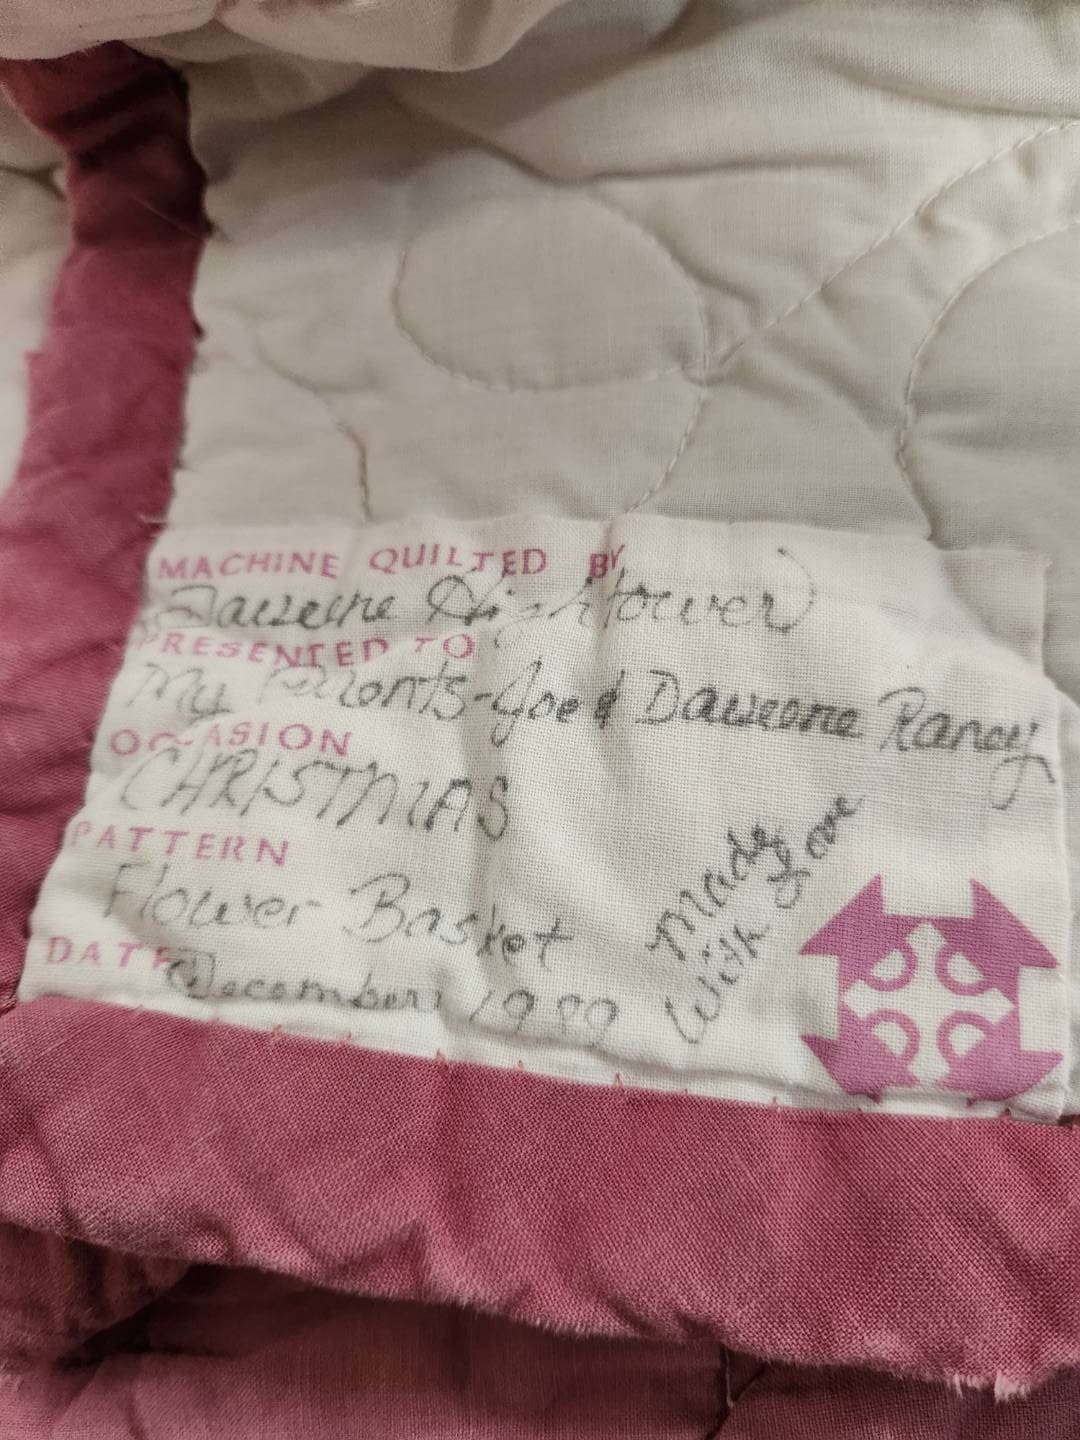 MACHINE QUILTED BY
Daweene Hightower
PRESENTED TO
My Parents - Joe & Daweene Raney
OCCASION
CHRISTMAS
PATTERN
Flower Basket
DATE
December 1989
Made
With Love